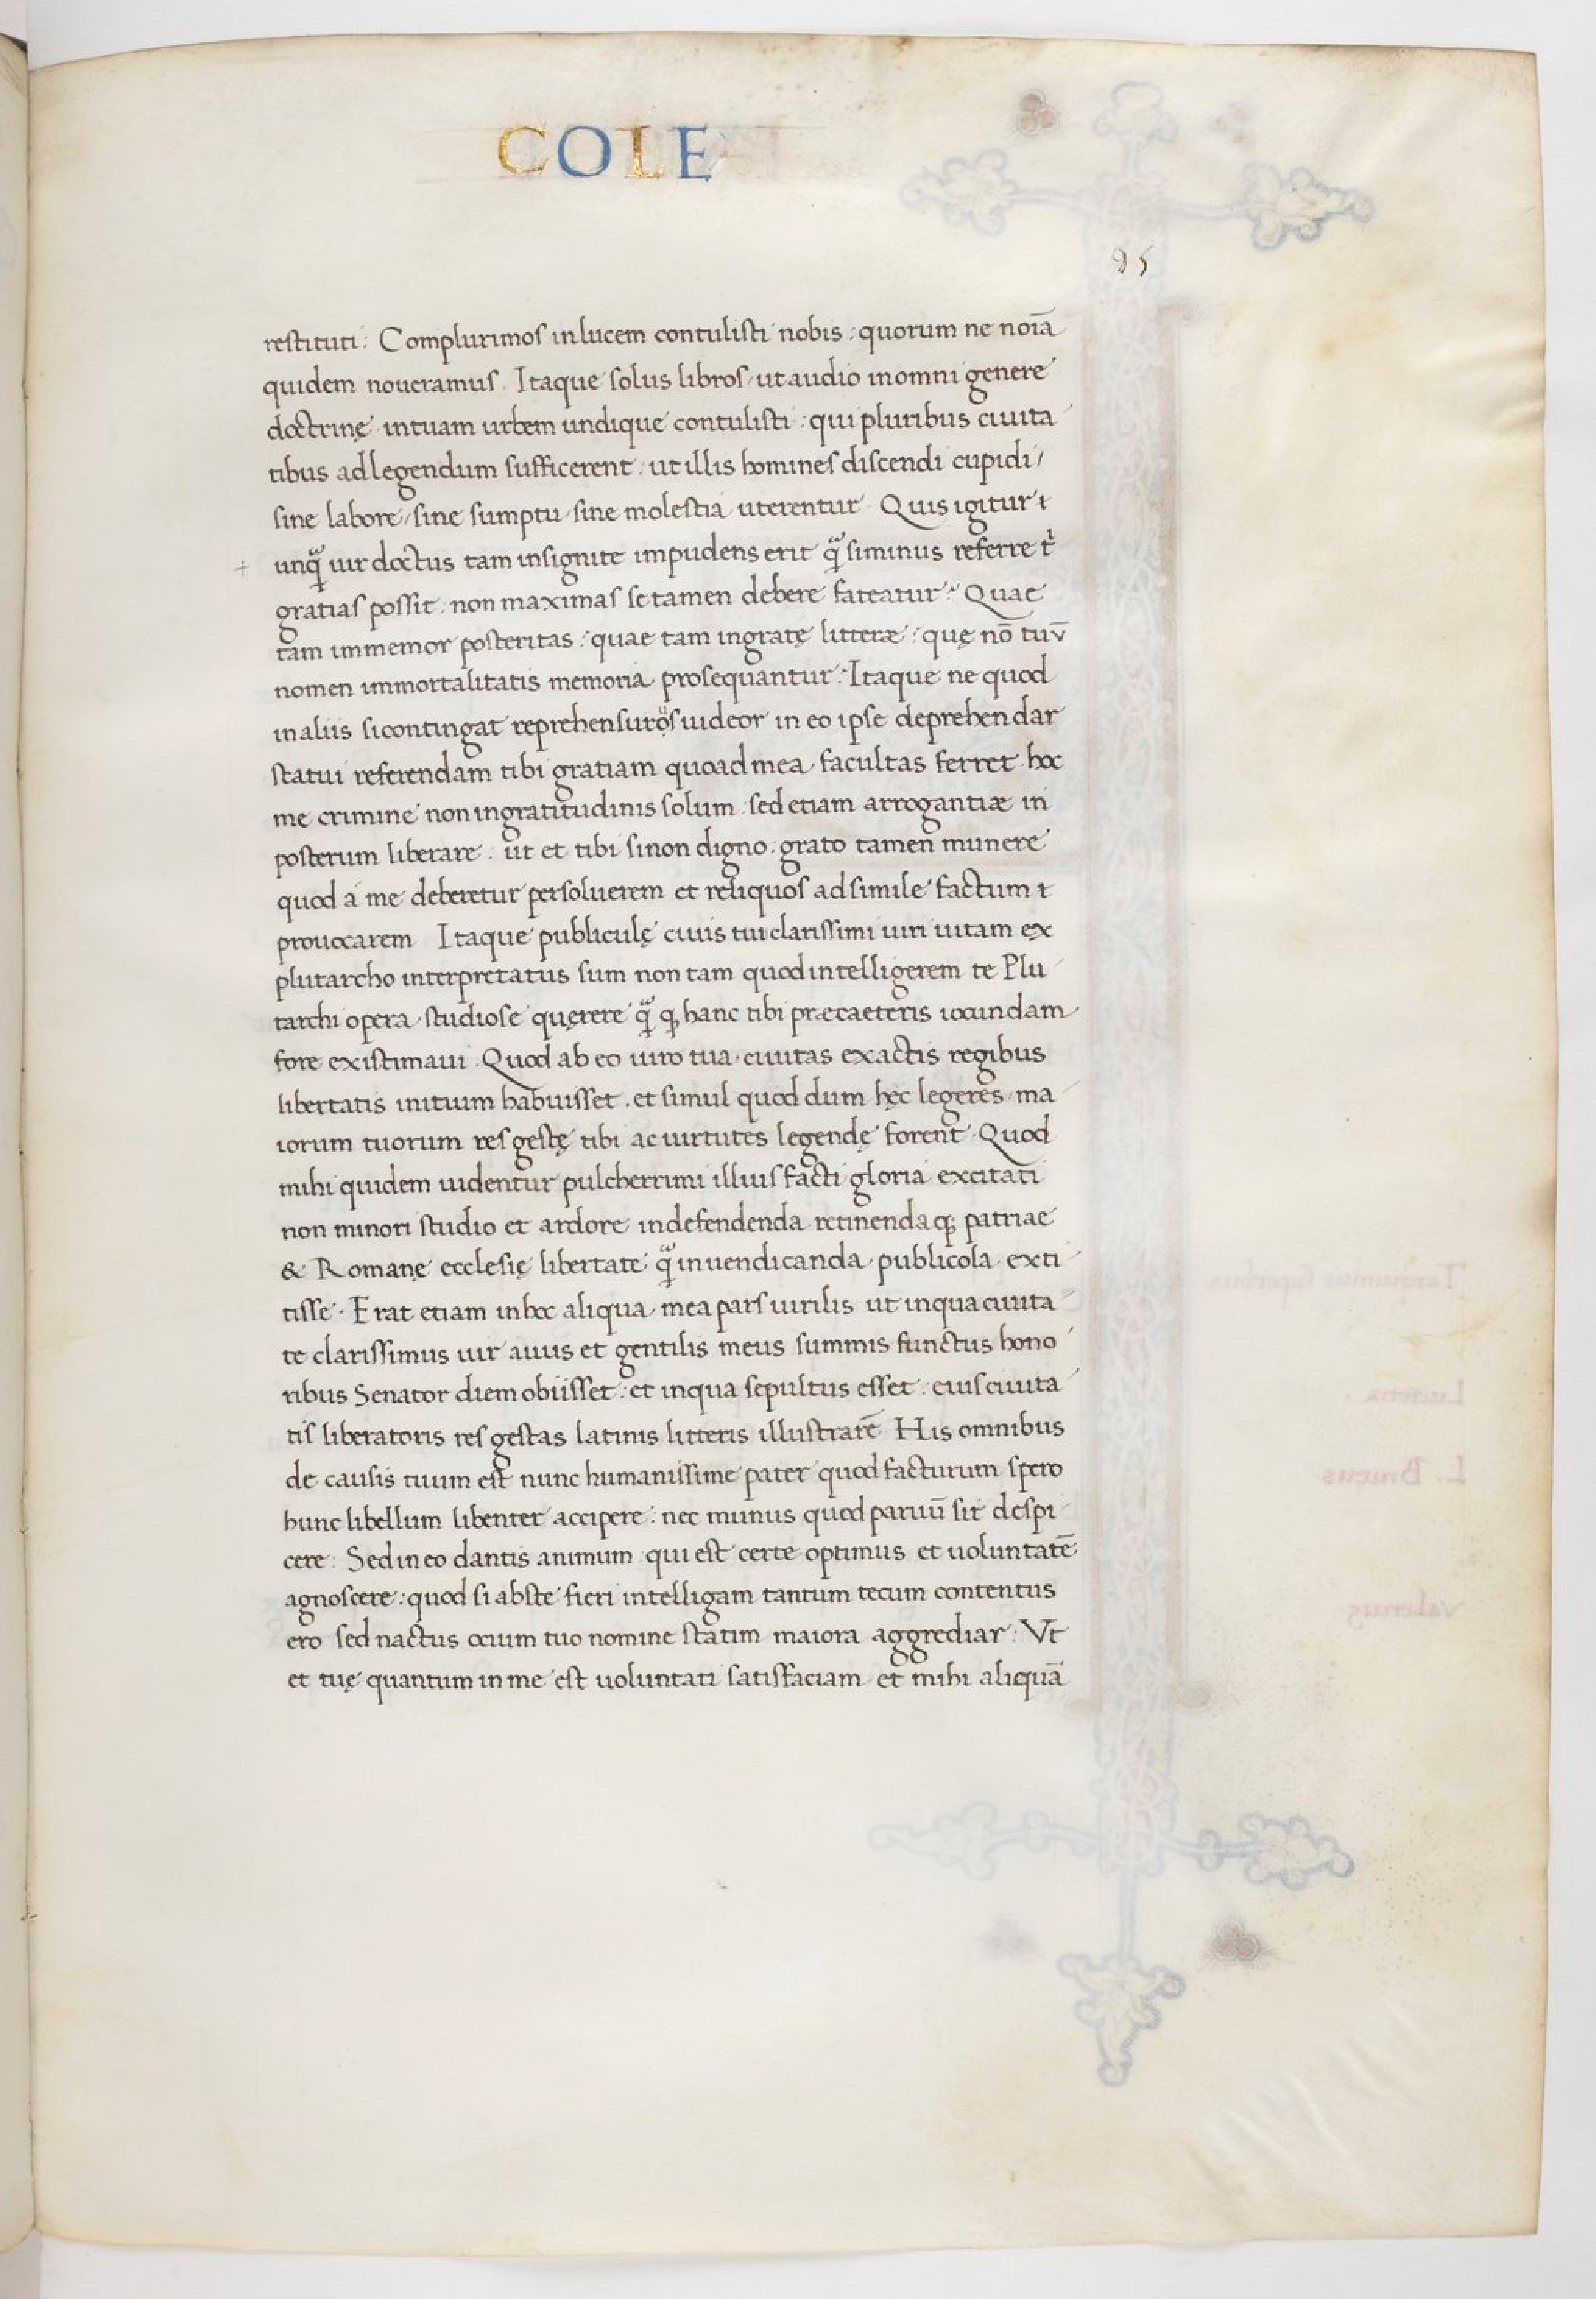 COLE
95
restituti: Complurimos in lucem contulisti nobis: quorum ne noīa
quidem noueramus. Itaque solus libros ut audio in omni genere
doctrinę in tuam urbem undique contulisti: qui pluribus ciuita
tibus ad legendum sufficerent: ut illis homines discendi cupidi/
sine labore, sine sumptu, sine molestia uterentur. Quis igitur
unq̃ uir doctus tam insignite impudens erit q̃ si minus referre t̓
gratias possit: non maximas se tamen debere fateatur? Quae
tam immemor posteritas: quae tam ingratę litteræ: quę nō tuū
nomen immortalitatis memoria prosequantur? Itaque ne quod
in aliis si contingat reprehensurus uideor in eo ipse deprehendar
statui referendam tibi gratiam quoad mea facultas ferret. hoc
me crimine non ingratitudinis solum: sed etiam arrogantiæ in
posterum liberare: ut et tibi si non digno: grato tamen munere
quod a me deberetur persoluerem et reliquos ad simile factum
prouocarem Itaque publiculę ciuis tui clarissimi uiri uitam ex
plutarcho interpretatus sum non tam quod intelligerem te Plu
tarchi opera studiose quęrere q̃ ꝙ hanc tibi præ caeteris iocundam
fore existimaui. Quod ab eo uiro tua ciuitas exactis regibus
libertatis initium habuisset. et simul quod dum hęc legeres ma
iorum tuorum res gestę tibi ac uirtutes legendę forent. Quod
mihi quidem uidentur pulcherrimi illius facti gloria excitati
non minori studio et ardore in defendenda retinendaq; patriae
& Romanę ecclesię libertate q̃ in uendicanda publicola exti
tisse. Erat etiam in hoc aliqua mea pars uirilis ut in qua ciuita
te clarissimus uir auus et gentilis meus summis functus hono
ribus Senator diem obiisset: et in qua sepultus esset: eius ciuita
tis liberatoris res gestas latinis litteris illustrarē His omnibus
de causis tuum est nunc humanissime pater quod facturum spero
hunc libellum libenter accipere: nec munus quod paruū sit despi
cere: Sed in eo dantis animum qui est certe optimus et uoluntatē
agnoscere: quod si abs te fieri intelligam tantum tecum contentus
ero sed nactus ocium tuo nomine statim maiora aggrediar: Vt
et tuę quantum in me est uoluntati satisfaciam et mihi aliquā